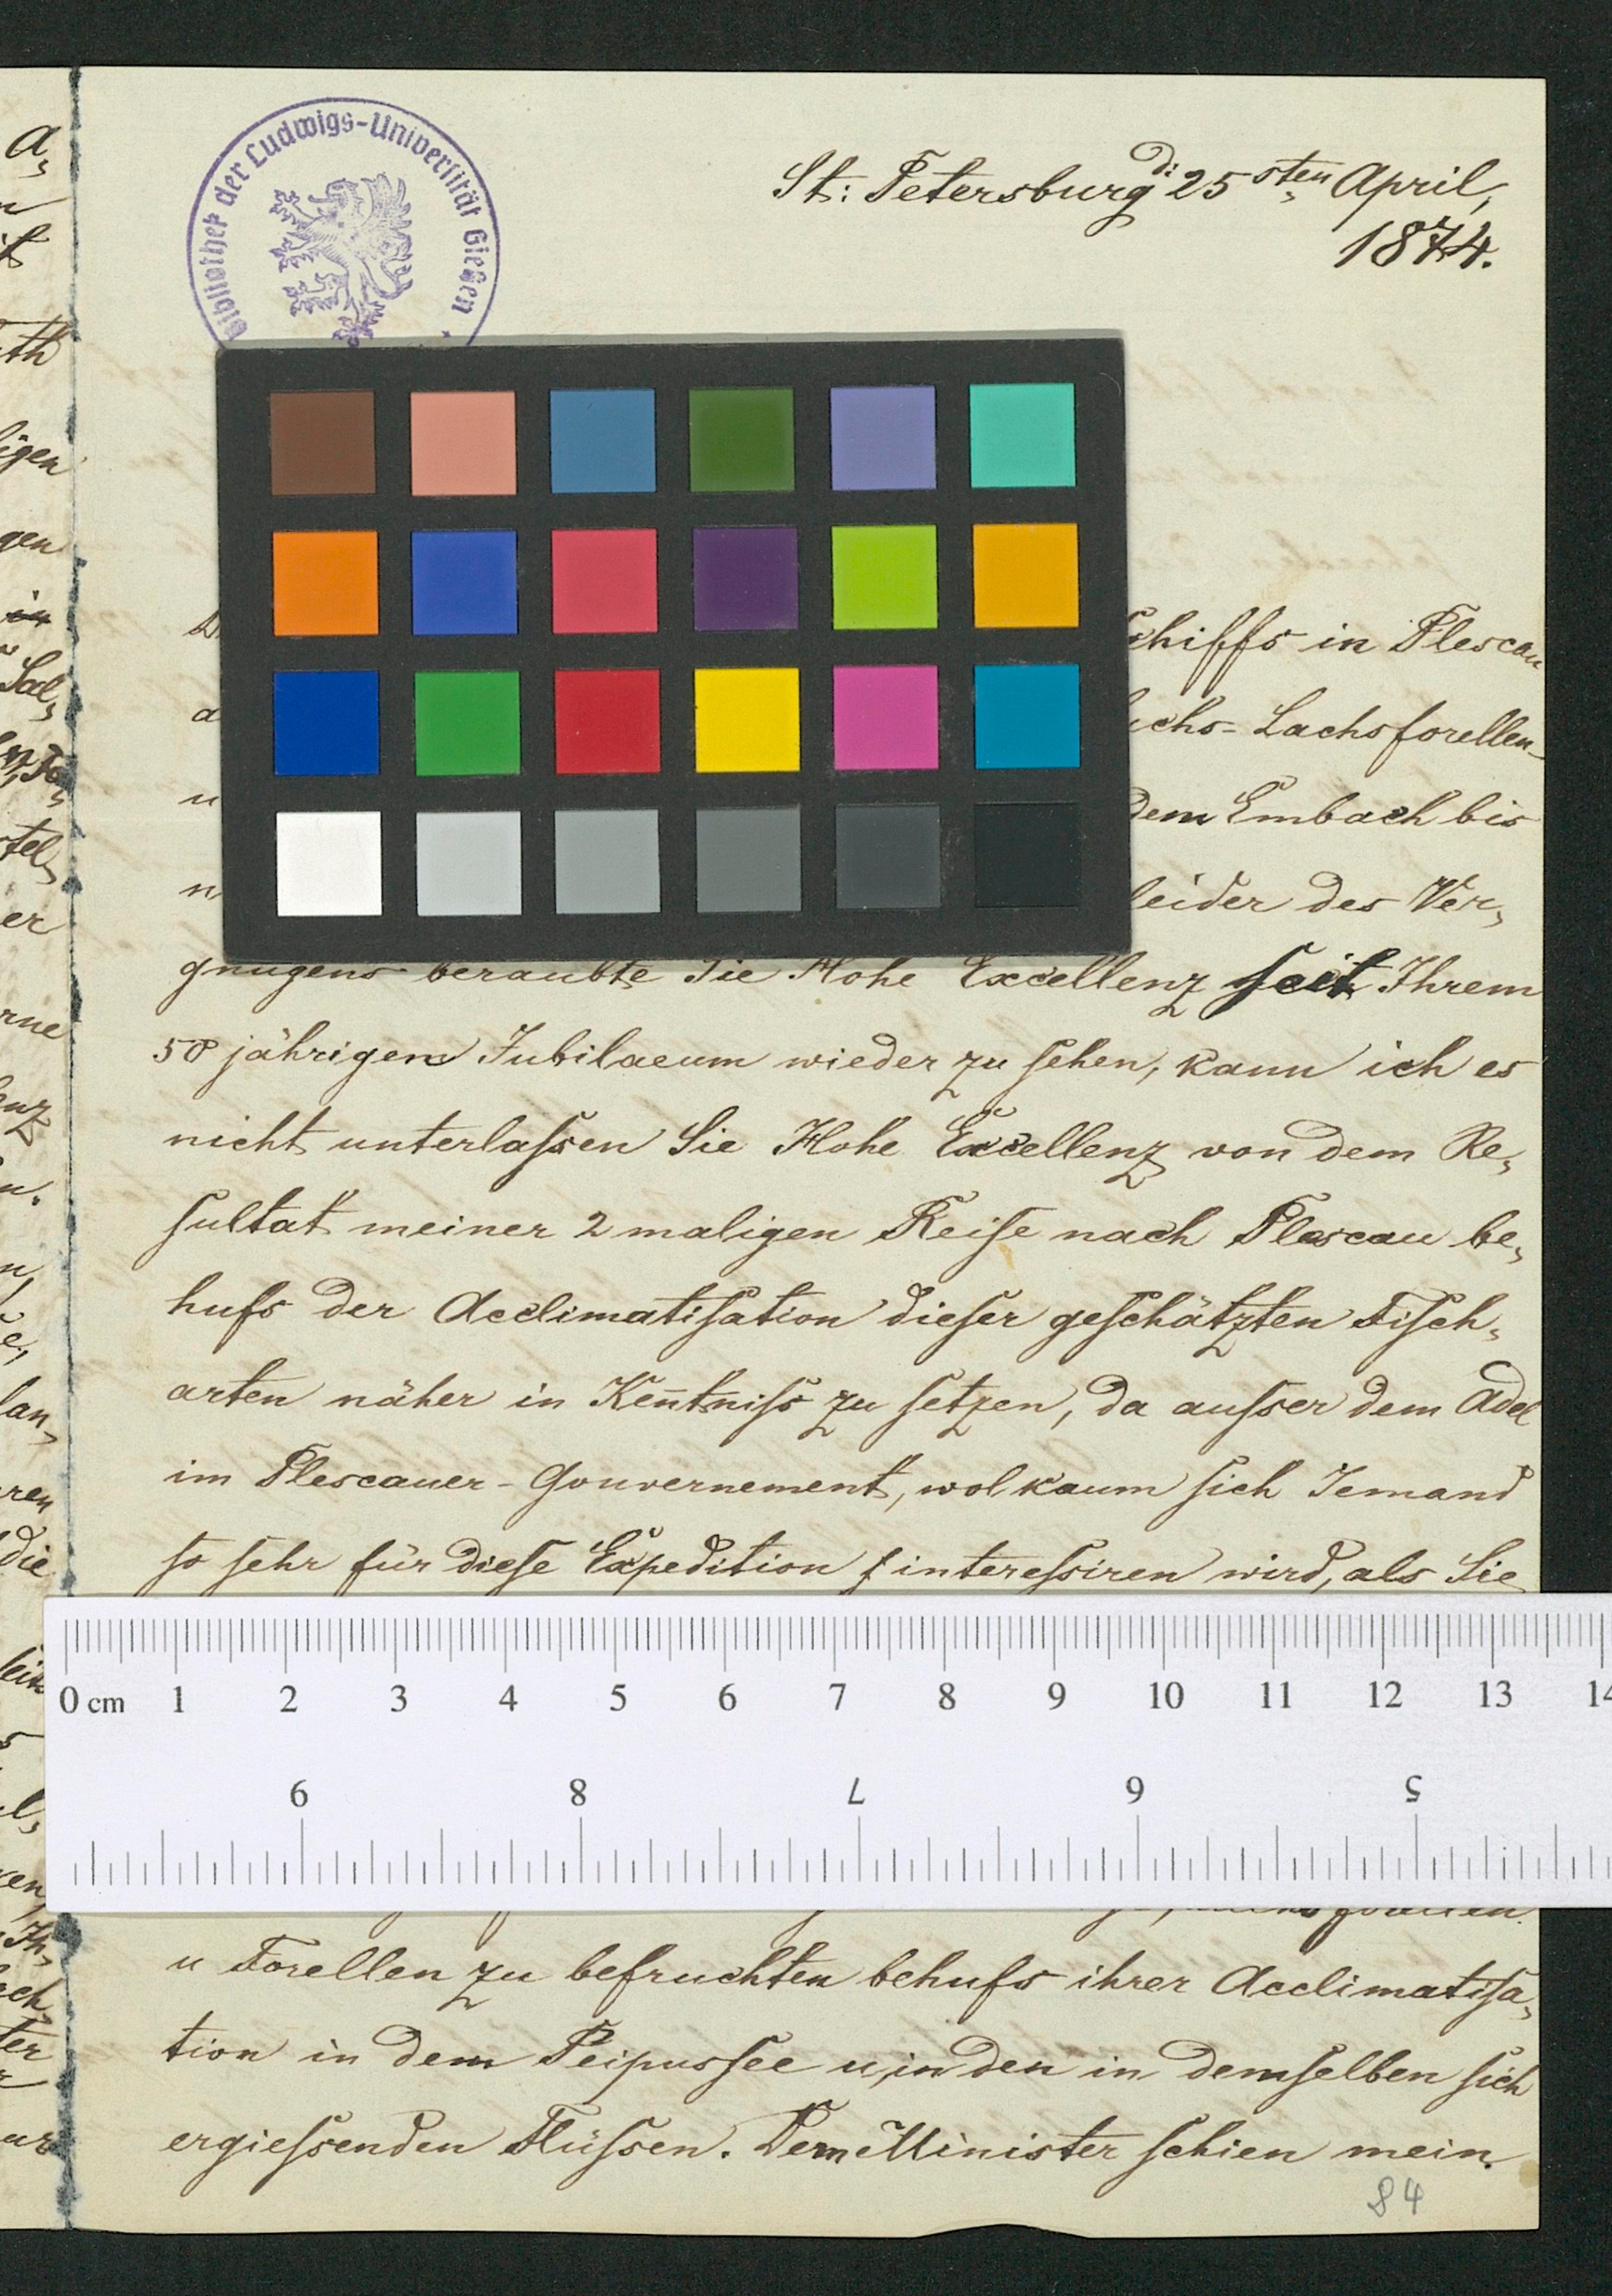 Bibliothek der Ludwigs-Universität Gießen
St: Petersburg d: 25sten April,
1874.
Schiffs in Plescau
Lachsforellen-
dem Embach bis
leider des Ver,
gnügens beraubte Sie Hohe Excellenz seit Ihrem
50 jährigen Jubilaeum wieder zu sehen, kann ich es
nicht unterlassen Sie Hohe Excellenz von dem Re,
sultat meiner 2 maligen Reise nach Plescau be,
hufs der Acclimatisation dieser geschätzten Fisch,
arten näher in Kentniss zu setzen, da ausser dem Adel
im Plescauer-Gouvernement, wol kaum sich Jemand
so sehr für diese Expedition interessiren wird, als Sie
0 cm 1 2 3 4 5 6 7 8 9 10 11 12 13 14
9 8 7 6 5
u Forellen zu befruchten behufs ihrer Acclimatisa,
tion in dem Peipussee u, in den in demselben sich
ergiessenden Flüssen. Dem Minister schien mein
84
a,
th
igen
gen
in
Sal,
tel,
er
rne
enz
lan,
ren
die